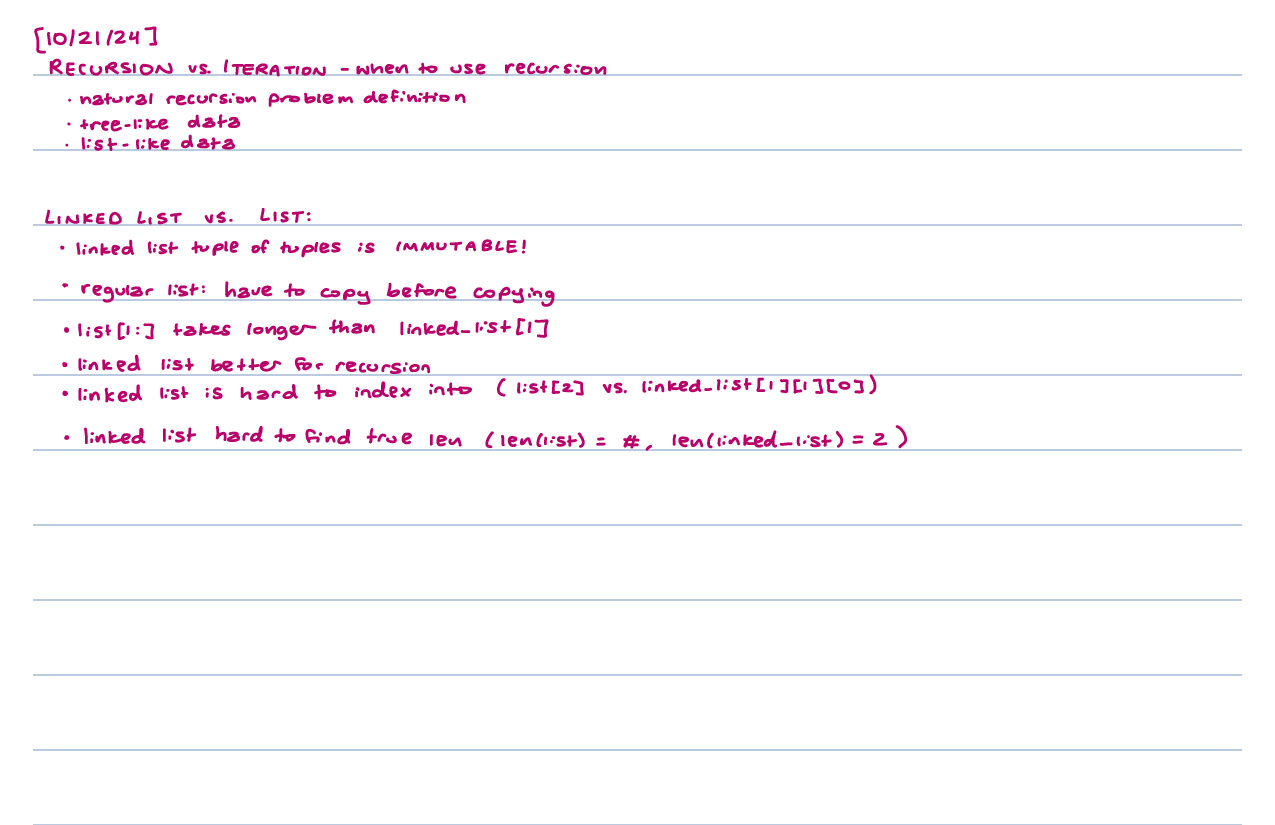 [10/21/24]
RECURSION vs. ITERATION - when to use recursion
· natural recursion problem definition
· tree-like data
· list-like data
LINKED LIST vs. LIST:
· linked list tuple of tuples is IMMUTABLE!
· regular list: have to copy before copying
· list[1:] takes longer than linked_list[1]
· linked list better for recursion
· linked list is hard to index into (list[2] vs. linked_list[1][1][0])
· linked list hard to find true len (len(list) = #, len(linked_list) = 2)